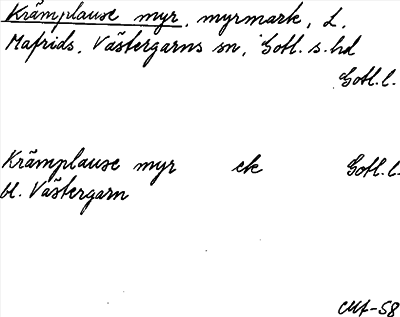 Krämplause myr, myrmark, L.
Mafrids, Västergarns sn, Gotl. s. hd
Gotl. l.
Krämplause myr ek Gotl. l.
bl. Västergarn
-58